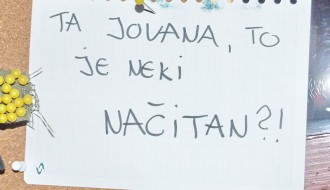 TA JOVANA, TO
JE NEKI
NAČITAN?!